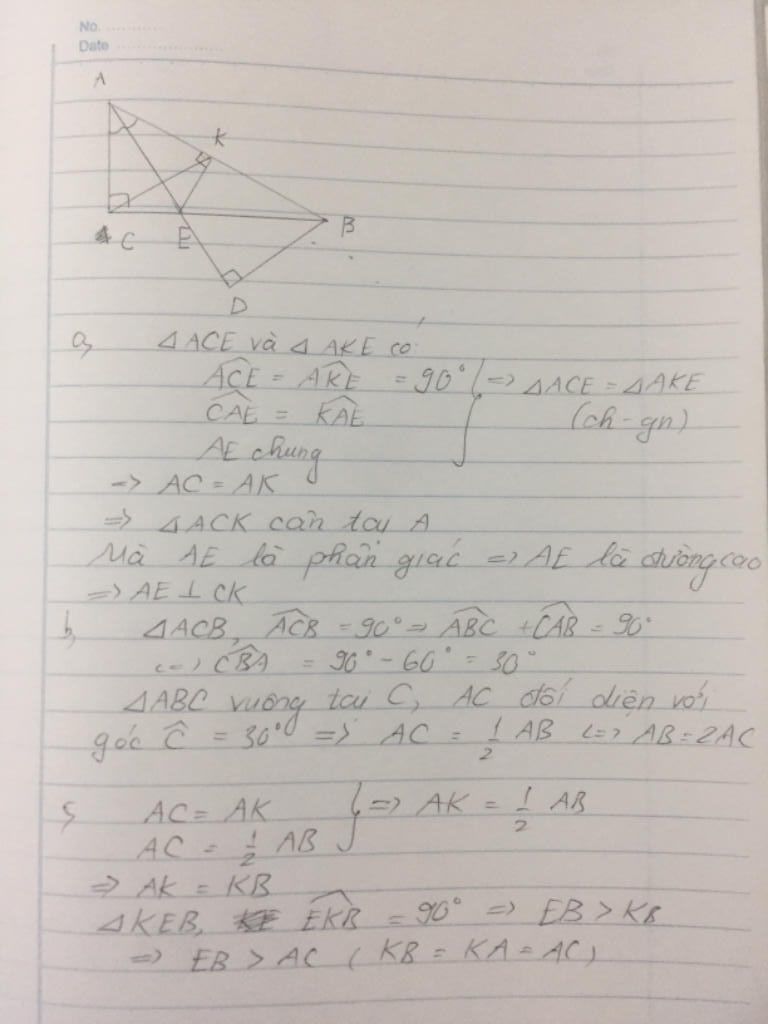 No. ............
Date ........................
A
K
C
E
B
D
a, △ACE và △AKE có:
ACE = AKE = 90° } => △ACE = △AKE
CAE = KAE (ch - gn)
AE chung
=> AC = AK
=> △ACK cân tại A
Mà AE là phân giác => AE là đường cao
=> AE ⊥ CK
b, △ACB, ACB = 90° => ABC + CAB = 90°
<=> CBA = 90° - 60° = 30°
△ABC vuông tại C, AC đối diện với
góc C = 30° => AC = 1/2 AB <=> AB = 2AC
c, AC = AK } => AK = 1/2 AB
AC = 1/2 AB
=> AK = KB
△KEB, EKB = 90° => EB > KB
=> EB > AC ( KB = KA = AC)